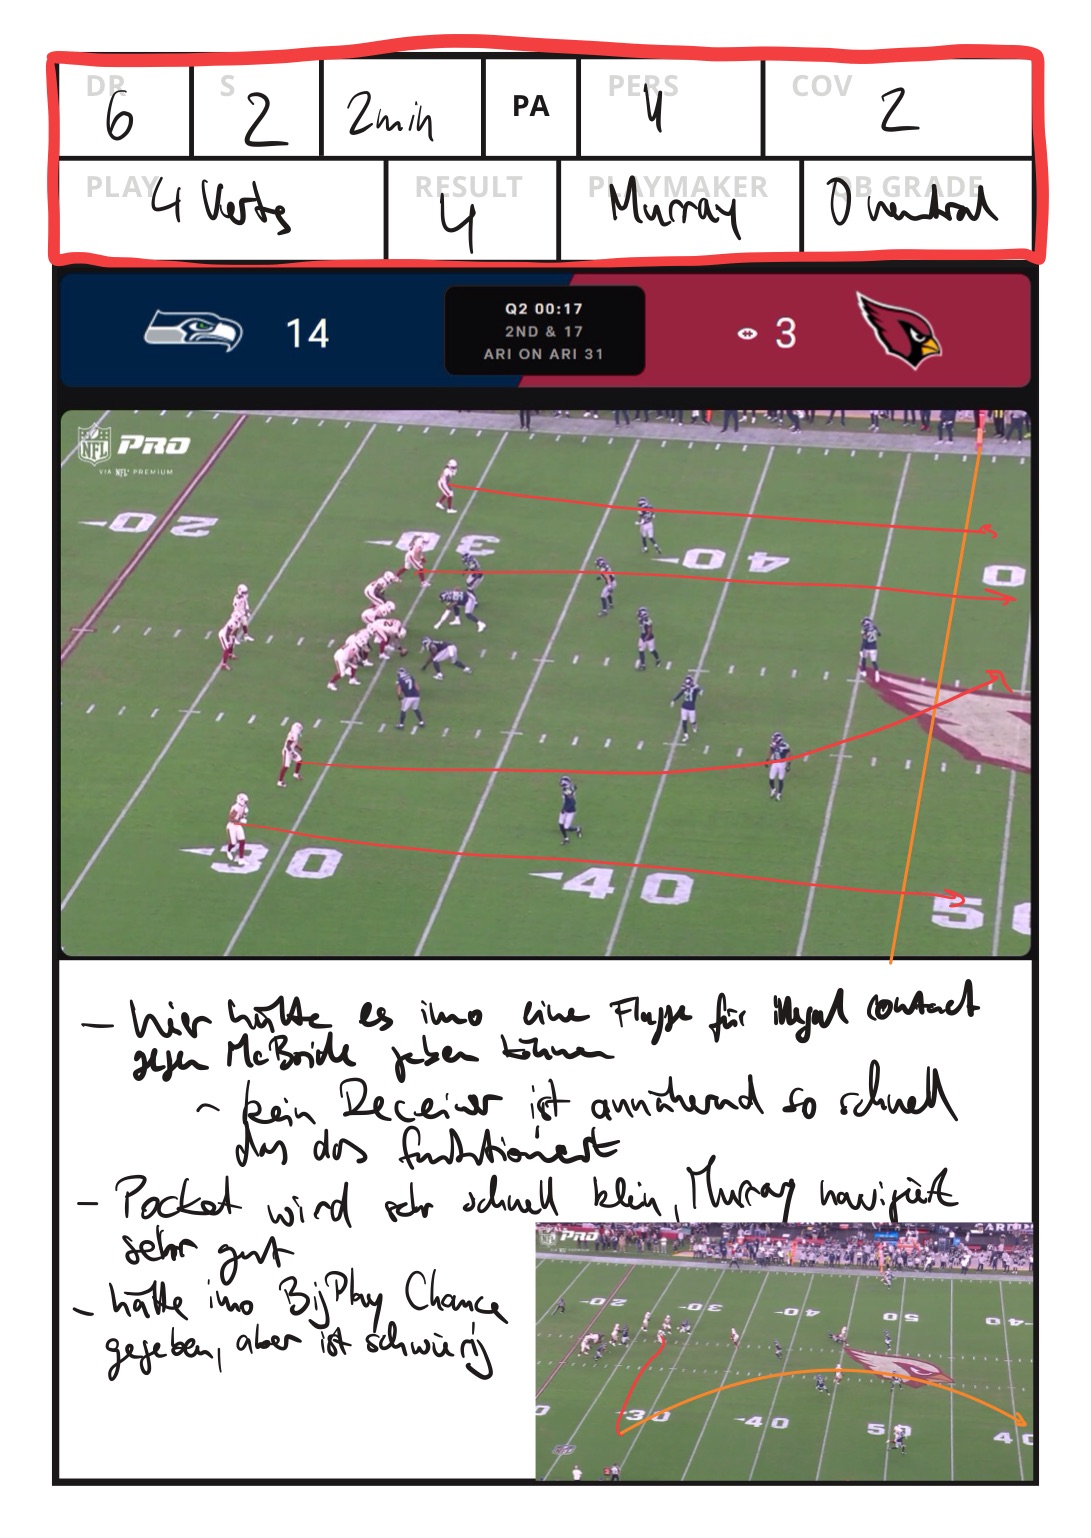 DR S PERS COV
6 2 2min PA 4 2
PLAY RESULT PLAYMAKER QB GRADE
4 Verts 4 Murray 0 neutral
14 Q2 00:17 3
2ND & 17
ARI ON ARI 31
NFL PRO
VIA NFL+ PREMIUM
20 30 40 0
30 40 50
– hier hätte es imo eine Flagge für illegal contact
gegen McBride geben können
~ kein Receiver ist annähernd so schnell
das das funktioniert
– Pocket wird sehr schnell klein, Murray navigiert
sehr gut
– hätte imo Big Play Chance
gegeben, aber ist schwierig
PRO
20 30 40 50 40
0 30 40 50 40